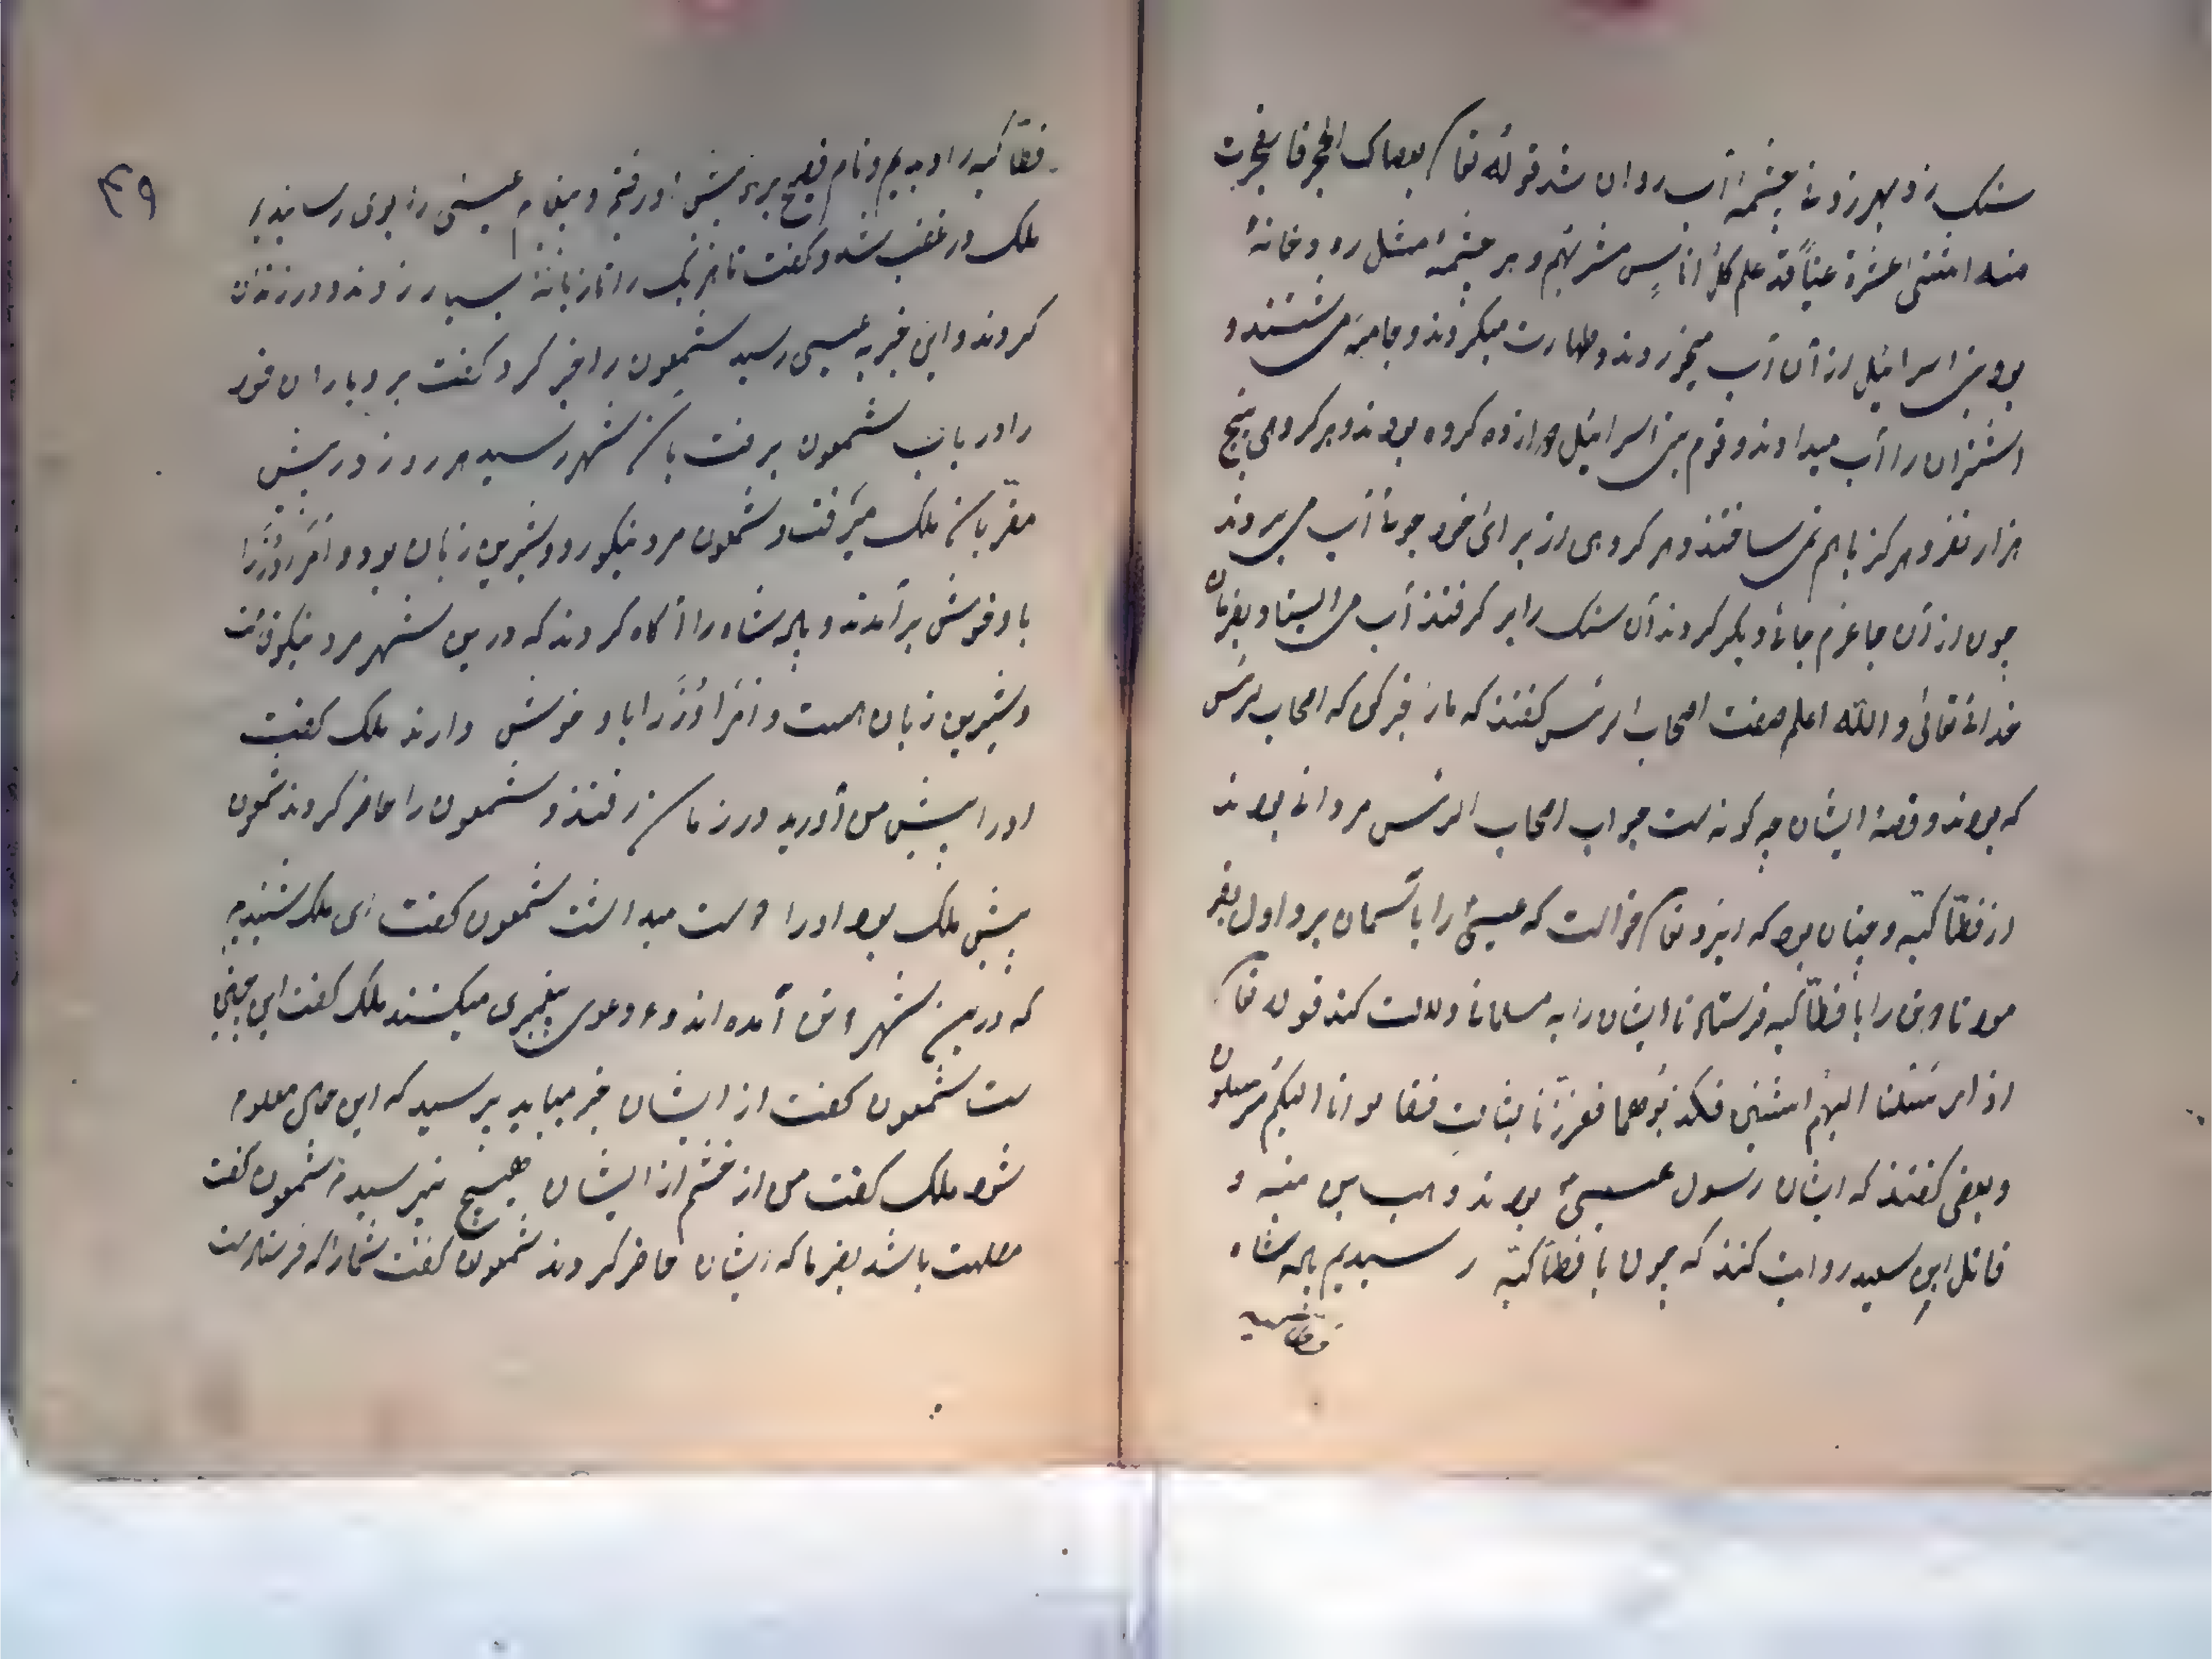 سنک زد بهر زدنی چشمهٔ آب روان شد قوله تعا بعصاک الحجر فانفجرت
منه اثنتی عشرة عیناً قد علم کل اناسٍ مشربهم و هر چشمهٔ مثل رودخانهٔ
بود بنی اسرائیل از آن آب میخوردند و طهارت میکردند و جامه می شستند و
اشتران را آب میدادند و قوم بنی اسرائیل دوازده کروه بودند و هر کروهی پنج
هزار نفر و هرکز باهم نمی ساختند و هر کروهی از برای خود جوی آب می بردند
چون از آن جا عزم جائی دیکر کردند آن سنک را بر کرفتند آب می ایستاد بفرمان
خدای تعالی و الله اعلم هفت اصحاب الرس کفتند که ما را خبر کن که اصحاب الرس
که بودند و قصهٔ ایشان چه کونه است جواب اصحاب الرس مردانی بودند
از فطاکیه و چنان بود که ایزد تعا خواست که عیسی را باسمان برد اول بفر
مود تا دو تن را با فطاکیه فرستاد تا ایشان را به مسلمانی دلالت کند قوله تعا
اذ ارسلنا الیهم اثنین فکذبوهما فعززنا بثالث فقالوا انا الیکم مرسلون
و بعضی کفتند که ایشان رسول عیسی بودند وهب بن منبه و
قائل ابن سعید روایت کنند که چون با فطاکیه رسیدیم پادشاه
فطاکیه
۴۹
فطاکیه را دیدیم و نام فصیح بود پیش او رفتیم و پیغام عیسی را بوی رسانیدیم
ملک در غضب شد و کفت تا هر یک را تازیانهٔ بسیار زدند و در زندان
کردند و این خبر به عیسی رسید شمعون را خبر کرد کفت برو یاران خود
را دریاب شمعون برفت بان شهر رسید هر روز در پیش
مقربان ملک میرفت و شمعون مرد نیکو رو و شیرین زبان بود
با و خوش برآمدند و پادشاه را آکاه کردند که درین شهر مرد نیکو
و شیرین زبان است و او را با و خوش دارند ملک کفت
او را پیش من آورید در زمان رفتند و شمعون را حاضر کردند شمعون
پیش ملک بود او را دوست میداشت شمعون کفت ای ملک شنیدم
که درین شهر دو تن آمده اند و دعوی پیغمبری میکنند ملک کفت این چنین
ست شمعون کفت از ایشان خبر میباید پرسید که این معلوم
شود ملک کفت من از خشم از ایشان هیچ نپرسیدم شمعون کفت
مصلحت باشد بفرما که ایشان حاضر کردند شمعون کفت شما را که فرستاده است